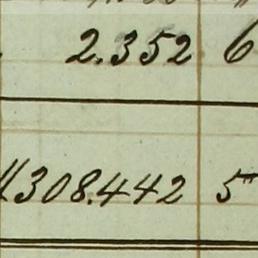 2.352 6
308.442 5